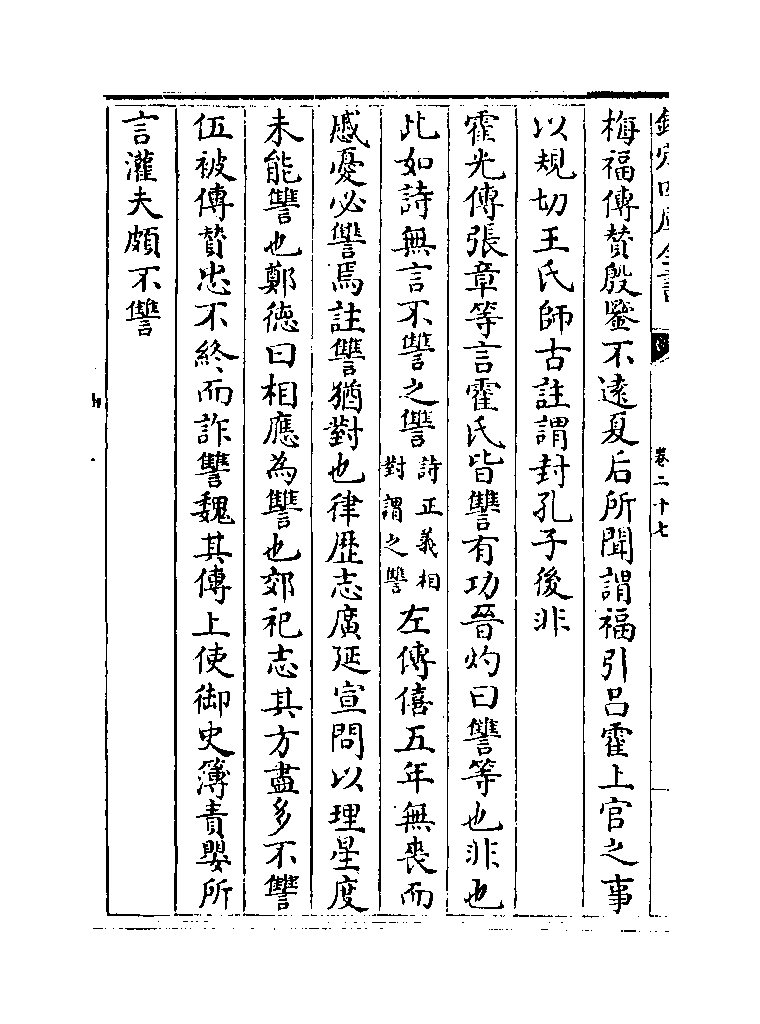 欽定四庫全書
卷二十七
梅福傳賛殷鑒不遠夏后所聞謂福引吕霍上官之事
以規切王氏師古註謂封孔子後非
霍光傳張章等言霍氏皆讐有功晉灼曰讐等也非也
此如詩無言不讐之讐詩正義相對謂之讐左傳僖五年無喪而
慼憂必讐焉註讐猶對也律歴志廣延宣問以理星度
未能讐也鄭徳曰相應為讐也郊祀志其方盡多不讐
伍被傳賛忠不終而詐讐魏其傳上使御史簿責嬰所
言灌夫頗不讐